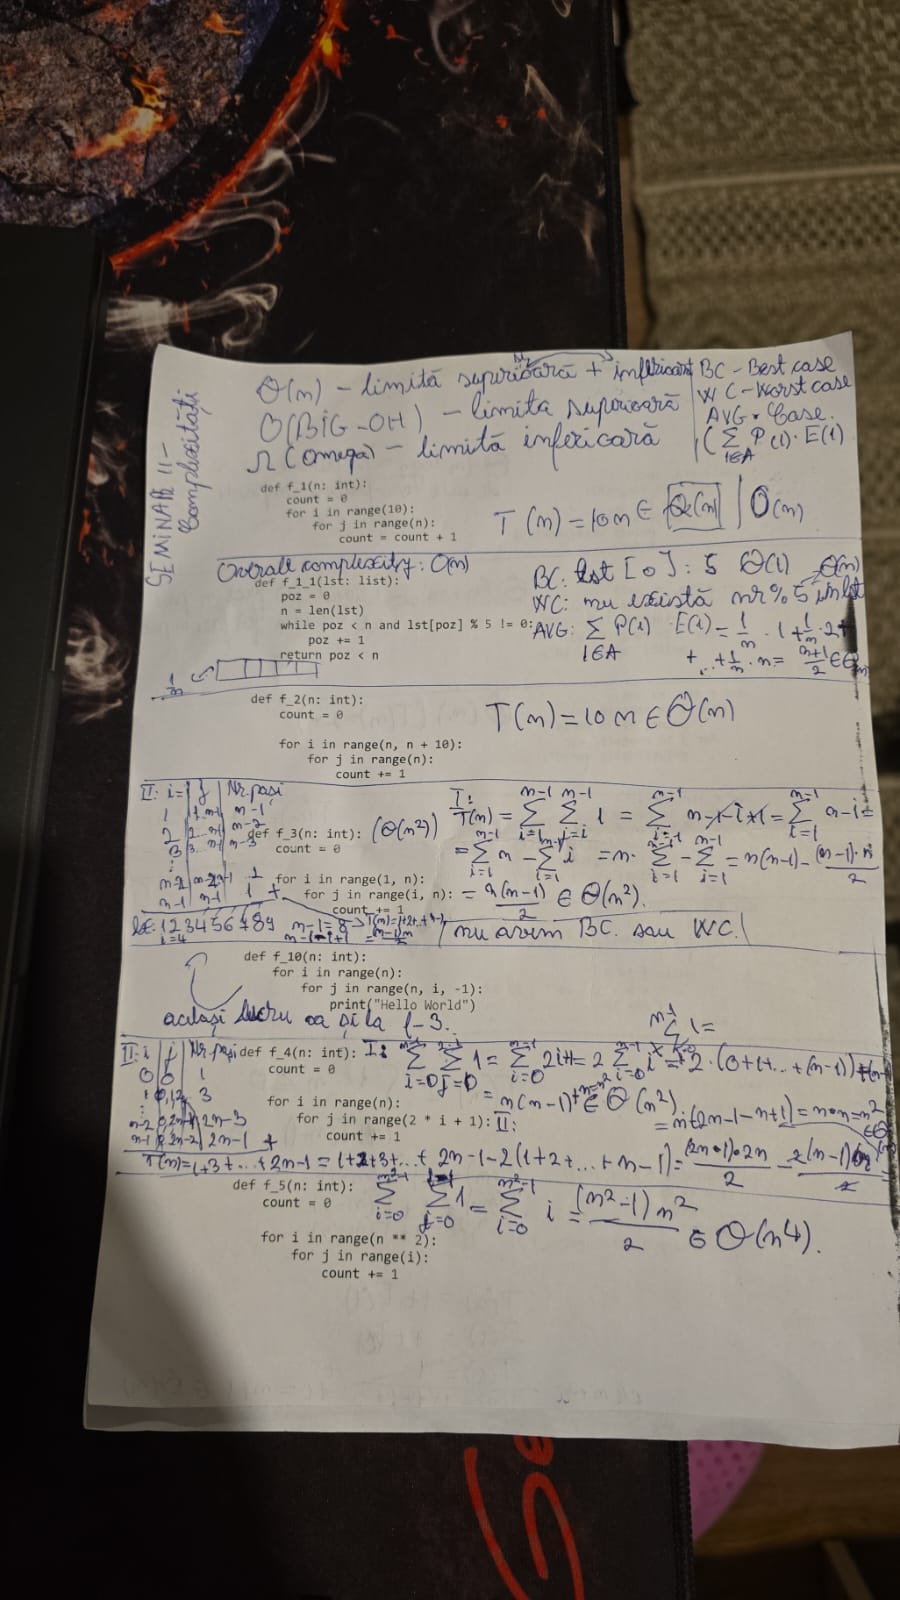 SEMINAR 11 -
Complexități
Θ(n) - limită superioară + inferioară
O(BIG-OH) - limita superioară
Ω(Omega) - limită inferioară
BC - Best case
WC - Worst case
AVG - Case.
(Σ P(i)·E(i)
i∈A
def f_1(n: int):
count = 0
for i in range(10):
for j in range(n):
count = count + 1
T(n) = 10n ∈ Θ(n) | O(n)
Overall complexity: O(n)
def f_1_1(lst: list):
poz = 0
n = len(lst)
while poz < n and lst[poz] % 5 != 0:
poz += 1
return poz < n
BC: lst[0]: 5 Θ(1)
WC: nu există nr % 5 în lst Θ(n)
AVG: Σ P(i) · E(i) = 1/n · 1 + 1/n · 2 +
i∈A
+ ... + 1/n · n = (n+1)/2 ∈ Θ(n)
1/n
def f_2(n: int):
count = 0
for i in range(n, n + 10):
for j in range(n):
count += 1
T(n) = 10n ∈ Θ(n)
II: i= | j | Nr. pași
1 | 1..n-1 | n-1
2 | 2..n-1 | n-2
3 | 3..n-1 | n-3
n-2 | n-2 n-1 | 2
n-1 | n-1 | 1 +
def f_3(n: int): (Θ(n²))
count = 0
for i in range(1, n):
for j in range(i, n):
count += 1
I:
T(n) = Σ Σ 1 = Σ n-1-i+1 = Σ n-i =
= Σ n - Σ i = n· Σ - Σ = n(n-1) - (n-1)·n/2
= n(n-1)/2 ∈ Θ(n²).
1 2 3 4 5 6 7 8 9
i=4
n-1=8
n-1-i+1
nu avem BC. sau WC.!
def f_10(n: int):
for i in range(n):
for j in range(n, i, -1):
print("Hello World")
același lucru ca și la f-3.
II: i | j | Nr. pași
0 | 0 | 1
1 | 0,1,2 | 3
n-2 | 0,2n-4 | 2n-3
n-1 | 0 2n-2 | 2n-1 +
def f_4(n: int):
count = 0
for i in range(n):
for j in range(2 * i + 1):
count += 1
I: Σ Σ 1 = Σ 2i+1 = 2 Σ i + Σ 1 = 2·(0+1+...+(n-1))
= n(n-1) + n = n² ∈ Θ(n²)
II:
= n(2n-1-n+1) = n·n = n²
T(n) = 1+3+...+2n-1 = 1+2+3+...+2n-1-2(1+2+...+n-1) = (2n-1)·2n/2 - 2(n-1)·n/2
def f_5(n: int):
count = 0
for i in range(n ** 2):
for j in range(i):
count += 1
Σ Σ 1 = Σ i = (n²-1)n²/2 ∈ Θ(n⁴).